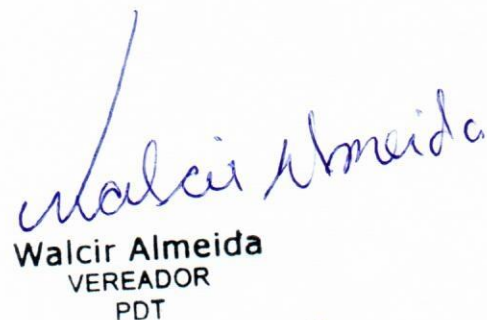 Walcir Almeida
Walcir Almeida
VEREADOR
PDT